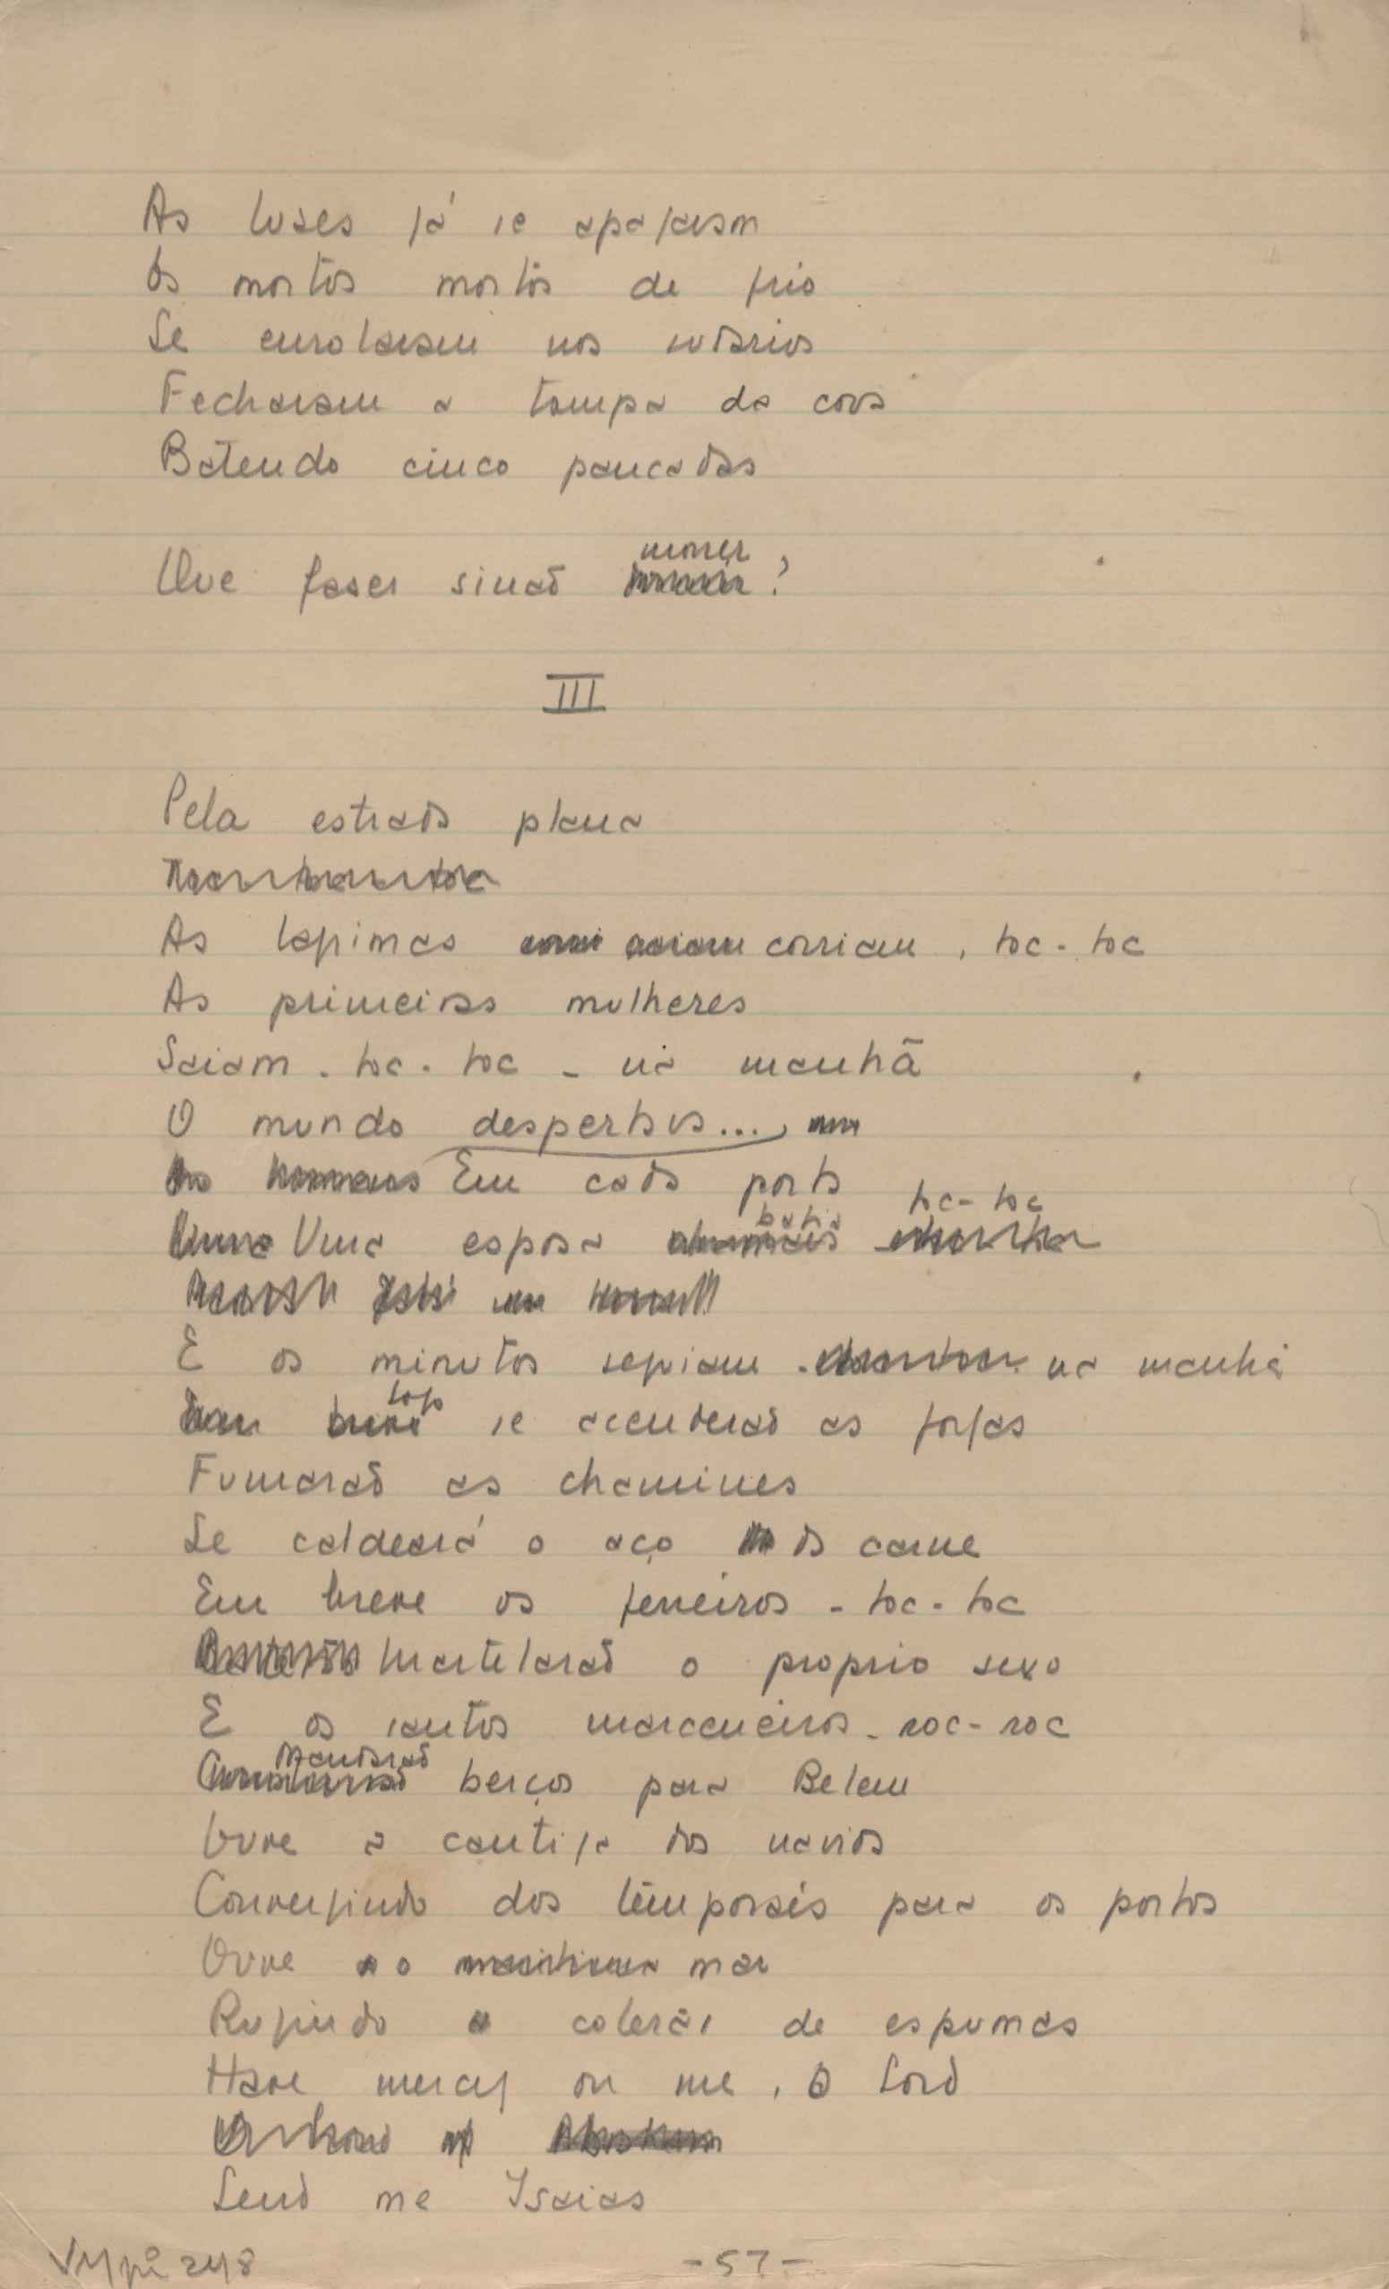 As luses já se apagaram
Os mortos mortos de frio
Se enrolaram nos sudarios
Fecharam a tampa da cova
Batendo cinco pancadas
Que faser sinaõ morrer?
III
Pela estrada plana
As lagrimas corriam, toc-toc
As primeiras mulheres
Saiam - toc-toc - na manhã
O mundo despertava...
Em cada porta
Uma esposa batia toc-toc
E os minutos na manhã
logo se acenderaõ as forjas
Fumaraõ as chamines
Se caldeará o aço da carne
Em breve os ferreiros - toc-toc
Martelaraõ o proprio sexo
E os santos marceneiros - roc-roc
Mandaraõ berços para Belem
Ouve a cantiga dos navios
Convergindo dos temporais para os portos
Ouve o mar
Rugindo coleras de espumas
Have mercy on me, O Lord
Send me Isaias
Vmpi 248
-57-